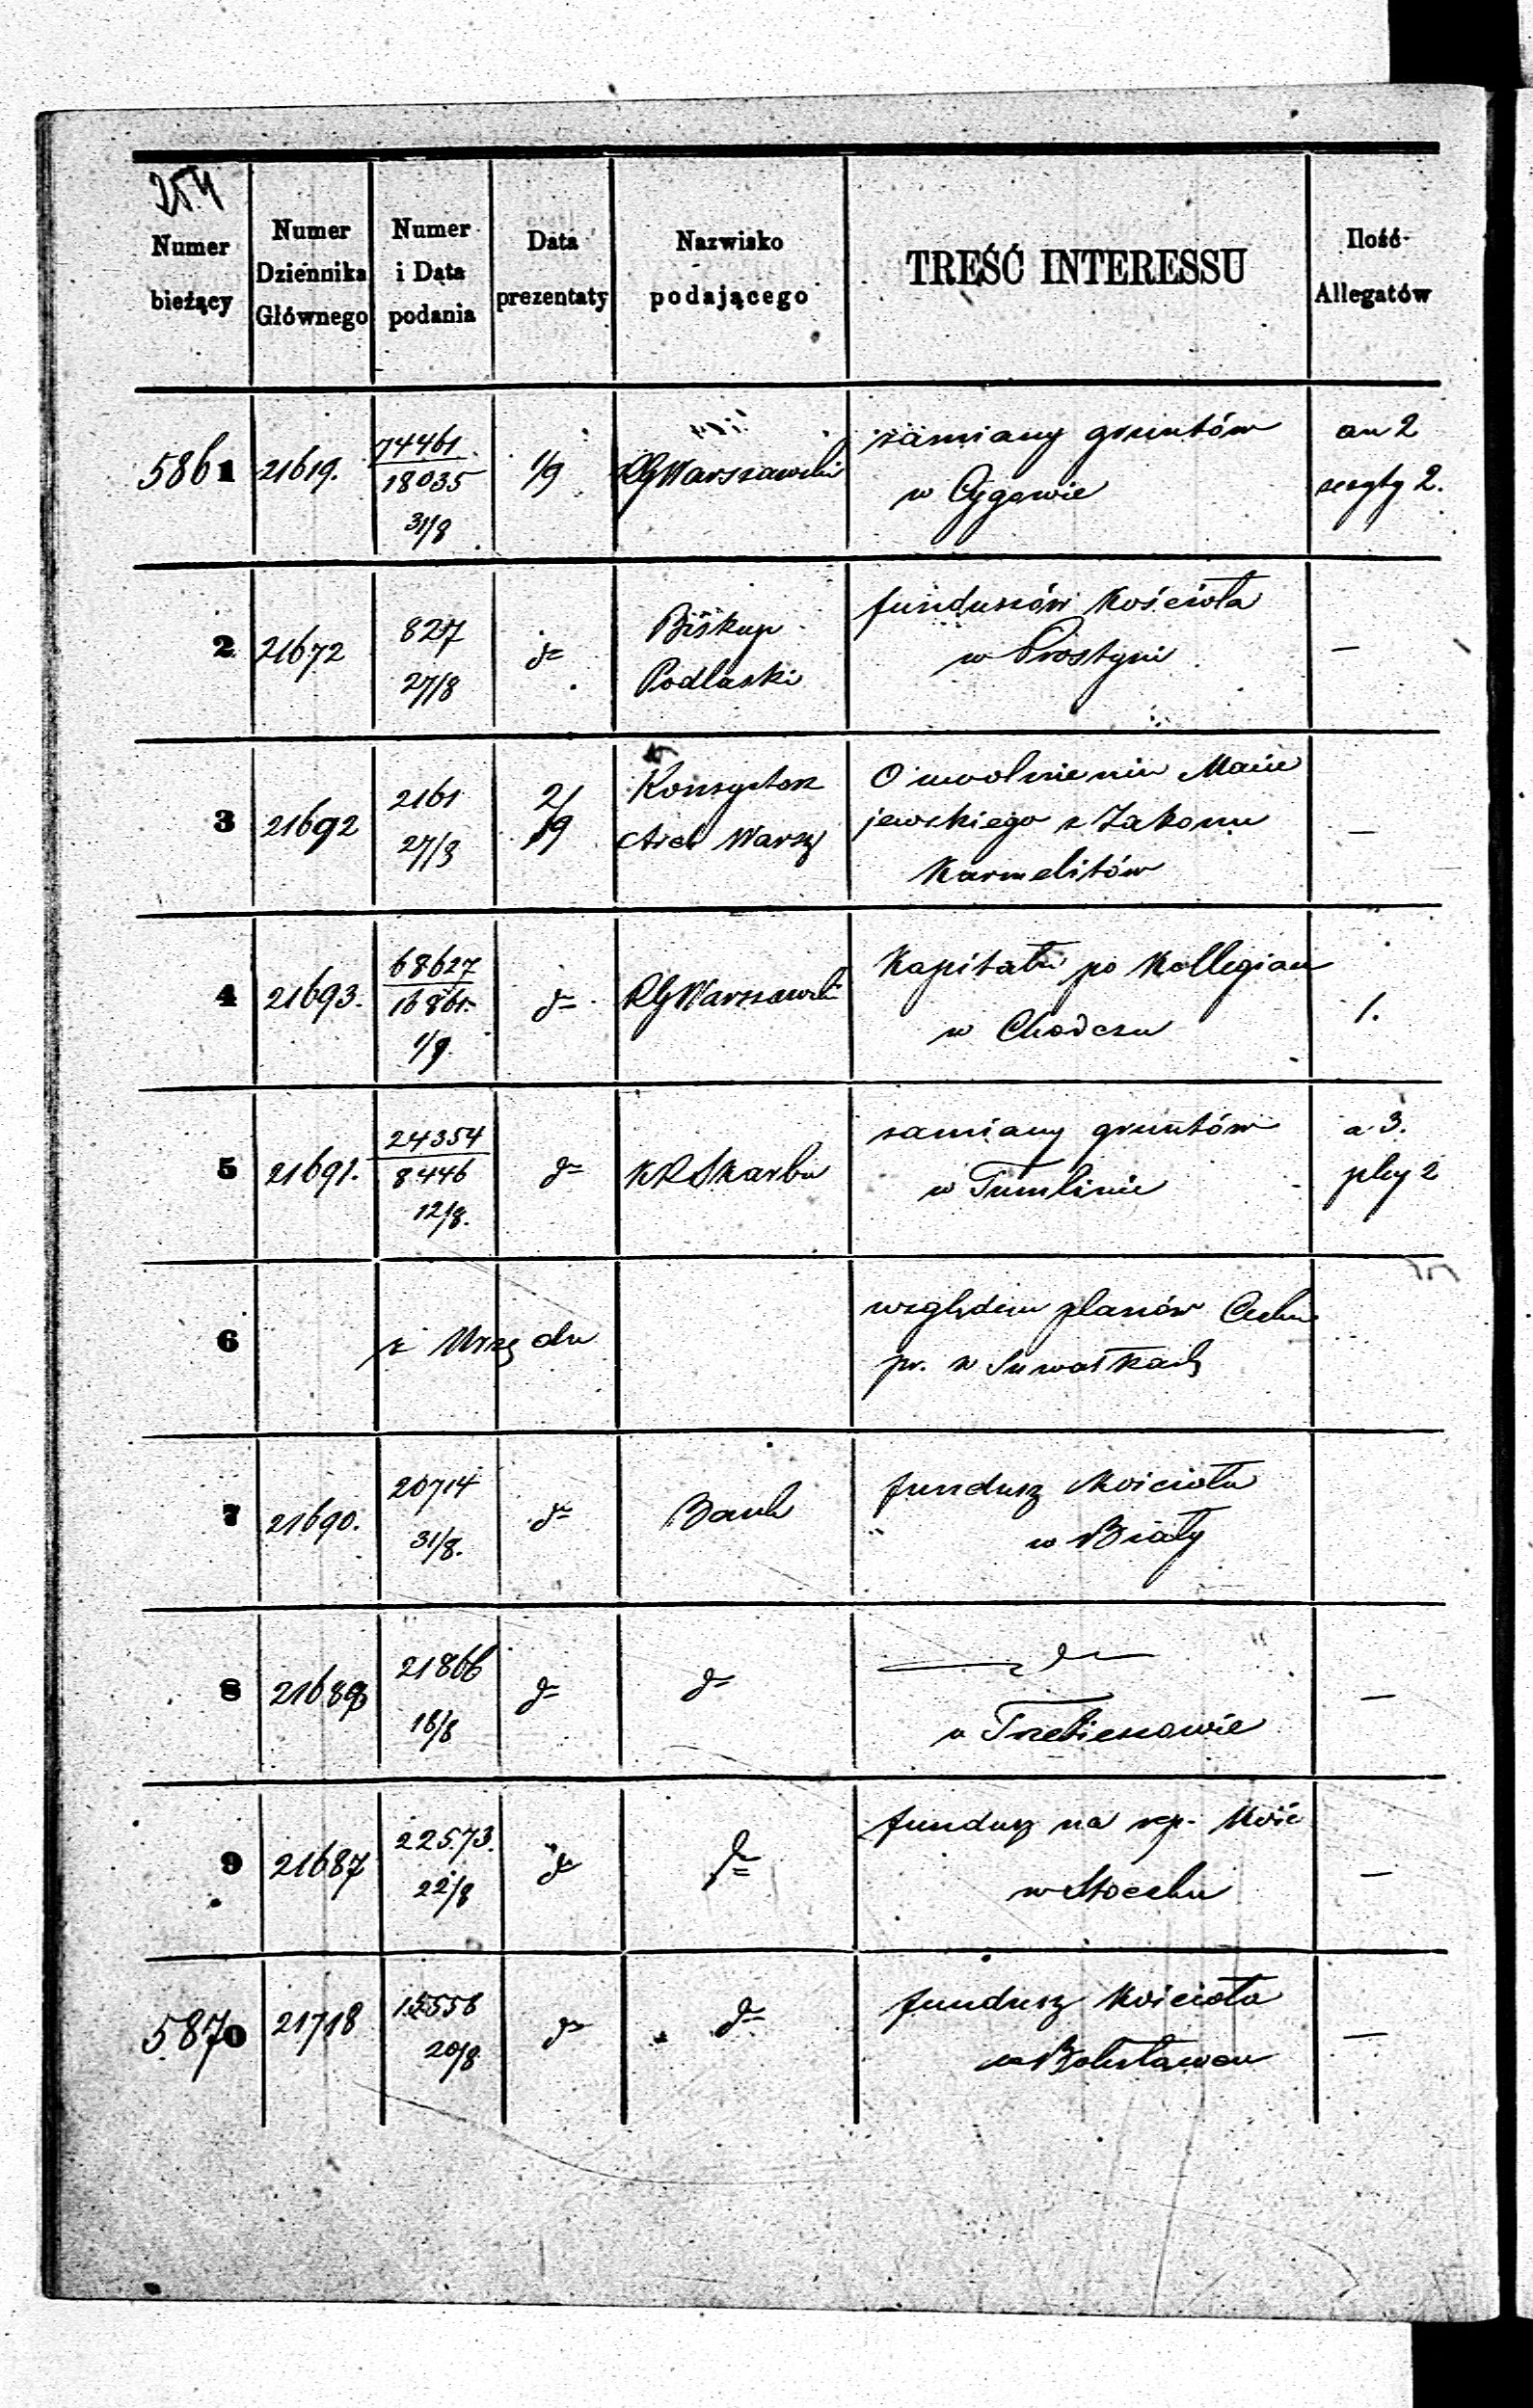 254
Numer bieżący
Numer Dziennika Głównego
Numer i Data podania
Data prezentaty
Nazwisko podającego
TREŚĆ INTERESSU
Ilość Allegatów
5861 21619. 74461 / 18035 31/8 1/9 RGWarszawski zamiany gruntów an 2
w Cygowie zeszyty 2.
2 21672 827 27/8 do Biskup funduszów Kościoła —
Podlaski w Prostyni
3 21692 2161 27/8 2/9 Konsystorz O uwolnieniu Macie —
Arch Warsz jewskiego z Zakonu
Karmelitów
4 21693. 68627 / 16861. 1/9. do RGWarszawski Kapitału po Kollegiacie 1.
w Chodczu
5 21691. 24354 / 8446 12/8. do KRSkarbu zamiany gruntów a 3.
w Tumlinie pley 2
6 z Urzędu względem planów
w Suwałkach
7 21690. 20714 31/8. do Bank fundusz Kościoła
w Biały
8 21689 21866 18/8 do do do —
w
9 21687 22573. 22/8 do do fundusz na rep. Kośc —
w Stocku
5870 21718 15558 20/8 do do fundusz Kościoła —
w Bolesławcu